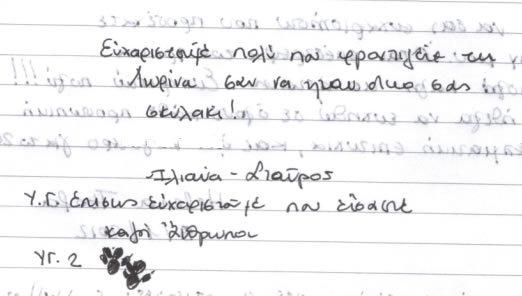 Ευχαριστούμε πολύ που φροντίζετε τη
Λωρίνα σαν να ήταν δικό σας
σκυλάκι!
Ιλιάνα - Σταύρος
Υ.Γ. Επίσης ευχαριστούμε που είσαστε
καλοί άνθρωποι
ΥΓ. 2